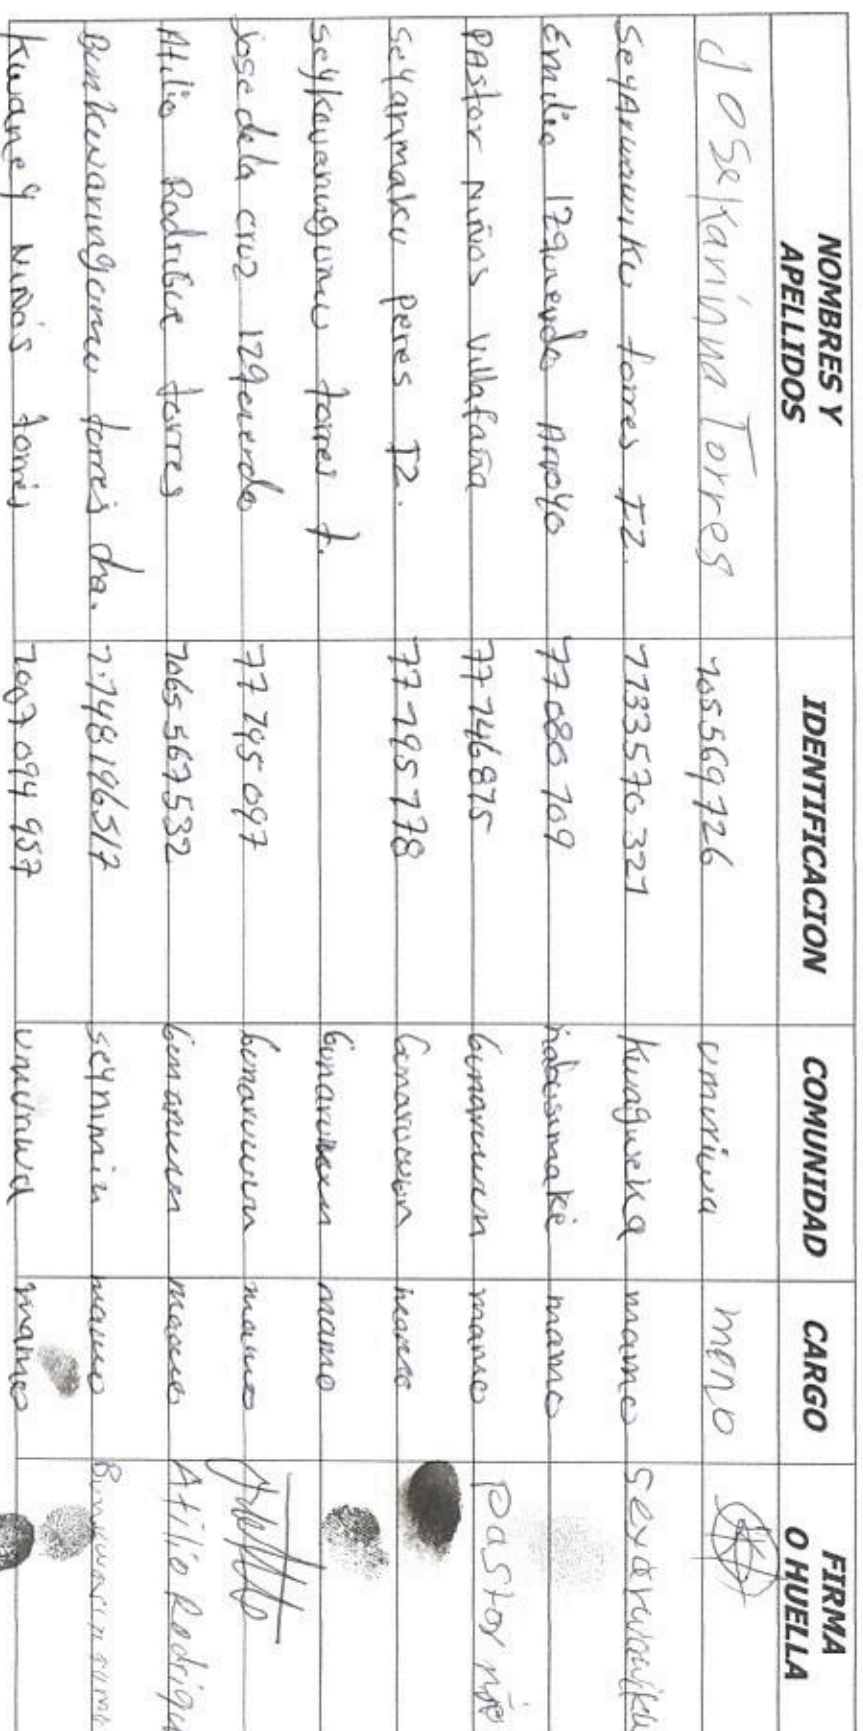 NOMBRES Y APELLIDOS IDENTIFICACION COMUNIDAD CARGO FIRMA O HUELLA
Josekarínna Torres 105569726 umuriwa mano
SeyArunwiku torres IZ. 1133570321 mamo
Emilio Izquerdo Arroyo 77080109 nabusimake mamo
PAstor Niños Villafaña 77146875 bunaruwun mamo Pastor niño
Seyarimaku peres IZ. 77195178 bunaruwun
Seykwanugumu torres t. bunaruwun mamo
Jose dela cruz Izquerdo 77195097 bunaruwun mamo
Atilio Rodrigue torres 1065567532 bunaruwun mamo Atilio Rodrigu
torres cha. 1.148196517 seynimin mamo
Kwaney Niños torres 1007094957 mamo